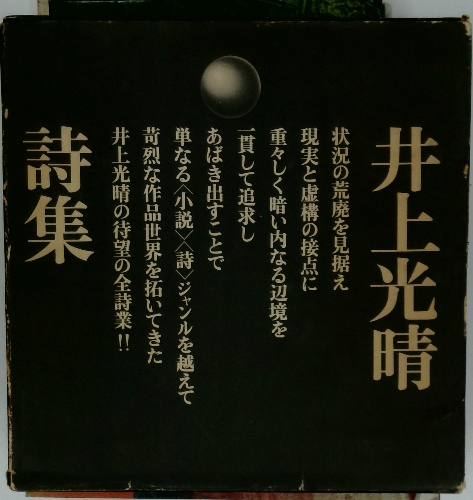 井上光晴
状況の荒廃を見据え
現実と虚構の接点に
重々しく暗い内なる辺境を
一貫して追求し
あばき出すことで
単なる〈小説〉〈詩〉ジャンルを越えて
苛烈な作品世界を拓いてきた
井上光晴の待望の全詩業!!
詩集